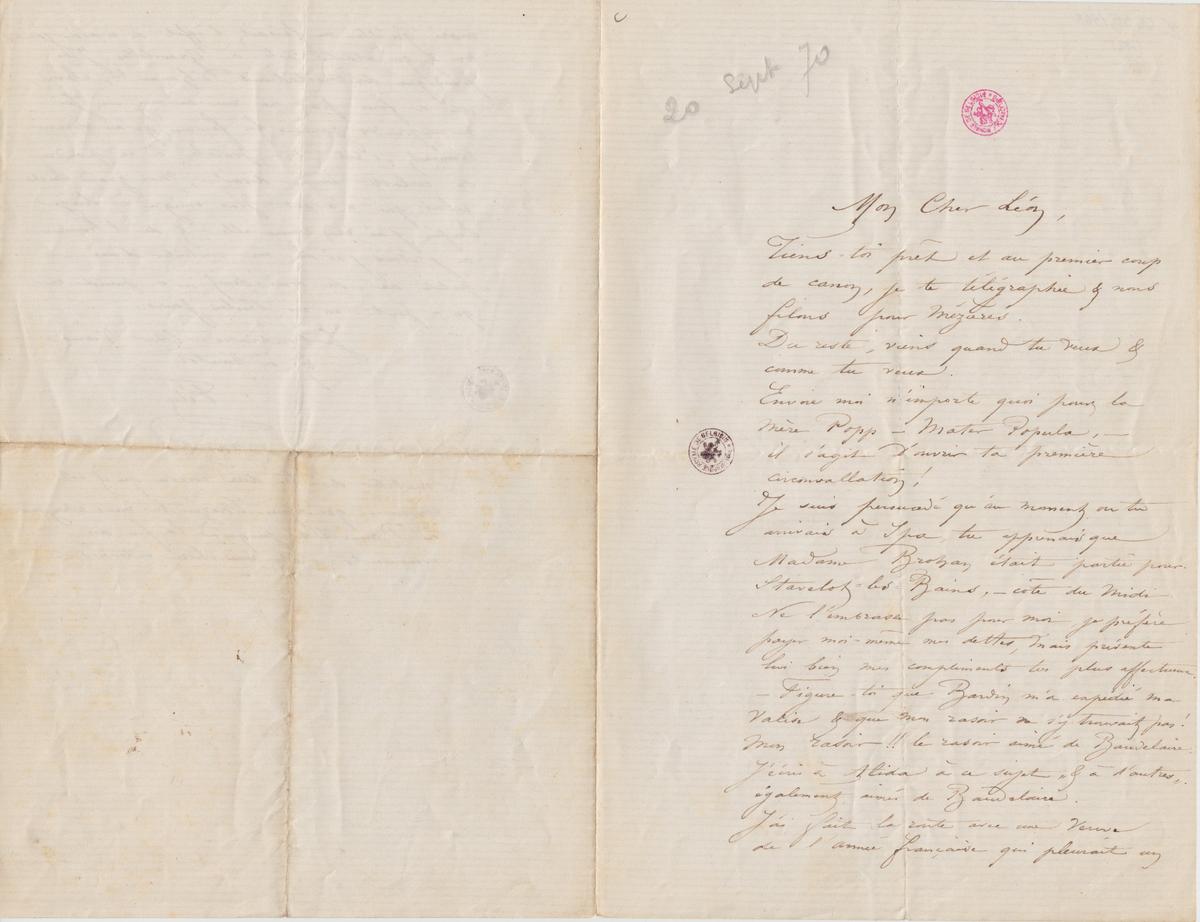 20 Sept 70
Mon Cher Léon,
Tiens-toi prêt et au premier coup
de canon, je te télégraphie & nous
filons pour Mézières.
Du reste, viens quand tu veux &
comme tu veux.
Envoie moi n'importe quoi pour la
mère Popp – Mater Popula, –
il s'agit d'ouvrir ta première
circonvallation!
Je suis persuadé qu'au moment ou tu
arrivais à Spa, tu apprenais que
Madame Brohan était partie pour
Stavelot-les-Bains, – côté du Midi
Ne l'embrasse pas pour moi, je préfère
payer moi-même mes dettes, mais présente
lui bien mes compliments les plus affectueux.
– Figure-toi que Bardin m'a expédié ma
valise & que mon rasoir ne s'y trouvait pas!
Mon rasoir!! le rasoir aimé de Baudelaire.
J'écris à Alida à ce sujet, & à d'autres,
également aimés de Baudelaire.
J'ai fait la route avec une veuve
de l'armée française qui pleurait un